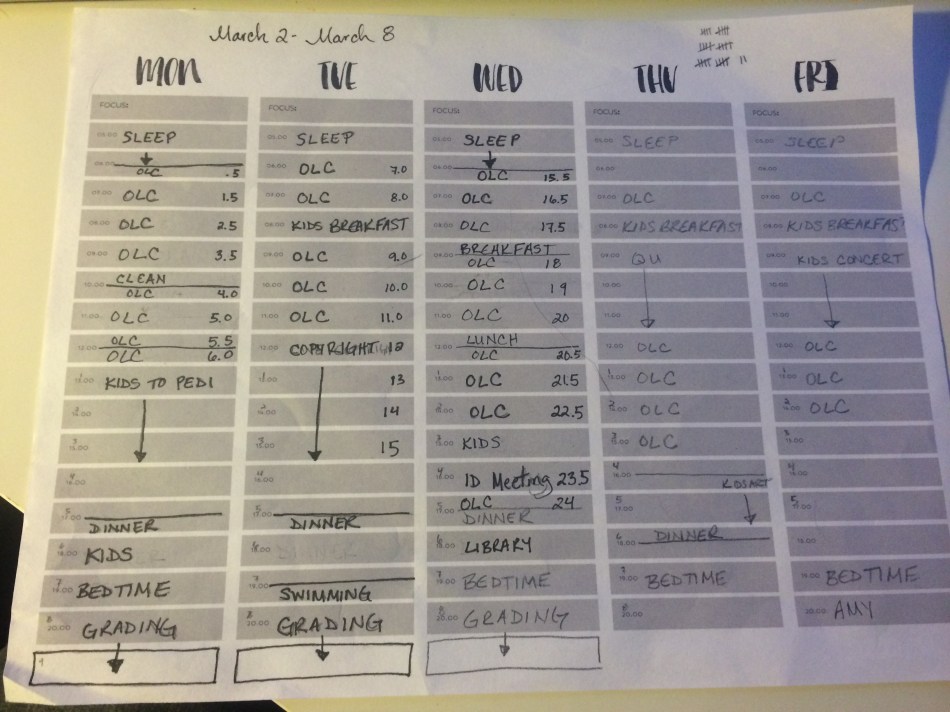 March 2 - March 8
MON TUE WED THU FRI
FOCUS: FOCUS: FOCUS: FOCUS: FOCUS:
05:00 SLEEP 05:00 SLEEP SLEEP 05:00 SLEEP 05:00 SLEEP
06:00 OLC .5 06:00 OLC 7.0 06:00 OLC 15.5 06:00 06:00
07:00 OLC 1.5 07:00 OLC 8.0 07:00 OLC 16.5 07:00 OLC 07:00 OLC
08:00 OLC 2.5 08:00 KIDS BREAKFAST 08:00 OLC 17.5 08:00 KIDS BREAKFAST 08:00 KIDS BREAKFAST
09:00 OLC 3.5 09:00 OLC 9.0 09:00 BREAKFAST OLC 18 09:00 QU 09:00 KIDS CONCERT
10:00 CLEAN OLC 4.0 10:00 OLC 10.0 10:00 OLC 19 10:00 10:00
11:00 OLC 5.0 11:00 OLC 11.0 11:00 OLC 20 11:00 11:00
12:00 OLC 5.5 OLC 6.0 12:00 COPYRIGHT 12 12:00 LUNCH OLC 20.5 12:00 OLC 12:00 OLC
1 13:00 KIDS TO PEDI 1 13:00 13 1 13:00 OLC 21.5 1 13:00 OLC 1 13:00 OLC
2 14:00 2 14:00 14 2 14:00 OLC 22.5 2 14:00 OLC 2 14:00 OLC
3 15:00 3 15:00 15 3 15:00 KIDS 3 15:00 OLC 3 15:00
4 16:00 4 16:00 4 16:00 ID Meeting 23.5 4 16:00 KIDS ART 4 16:00
5 17:00 DINNER 5 17:00 DINNER 5 17:00 OLC 24 DINNER 5 17:00 5 17:00
6 18:00 KIDS 18:00 DINNER 6 18:00 LIBRARY 6 18:00 DINNER 18:00
7 19:00 BEDTIME 7 19:00 SWIMMING 7 19:00 BEDTIME 7 19:00 BEDTIME 19:00 BEDTIME
8 20:00 GRADING 8 20:00 GRADING 8 20:00 GRADING 8 20:00 20:00 AMY
9